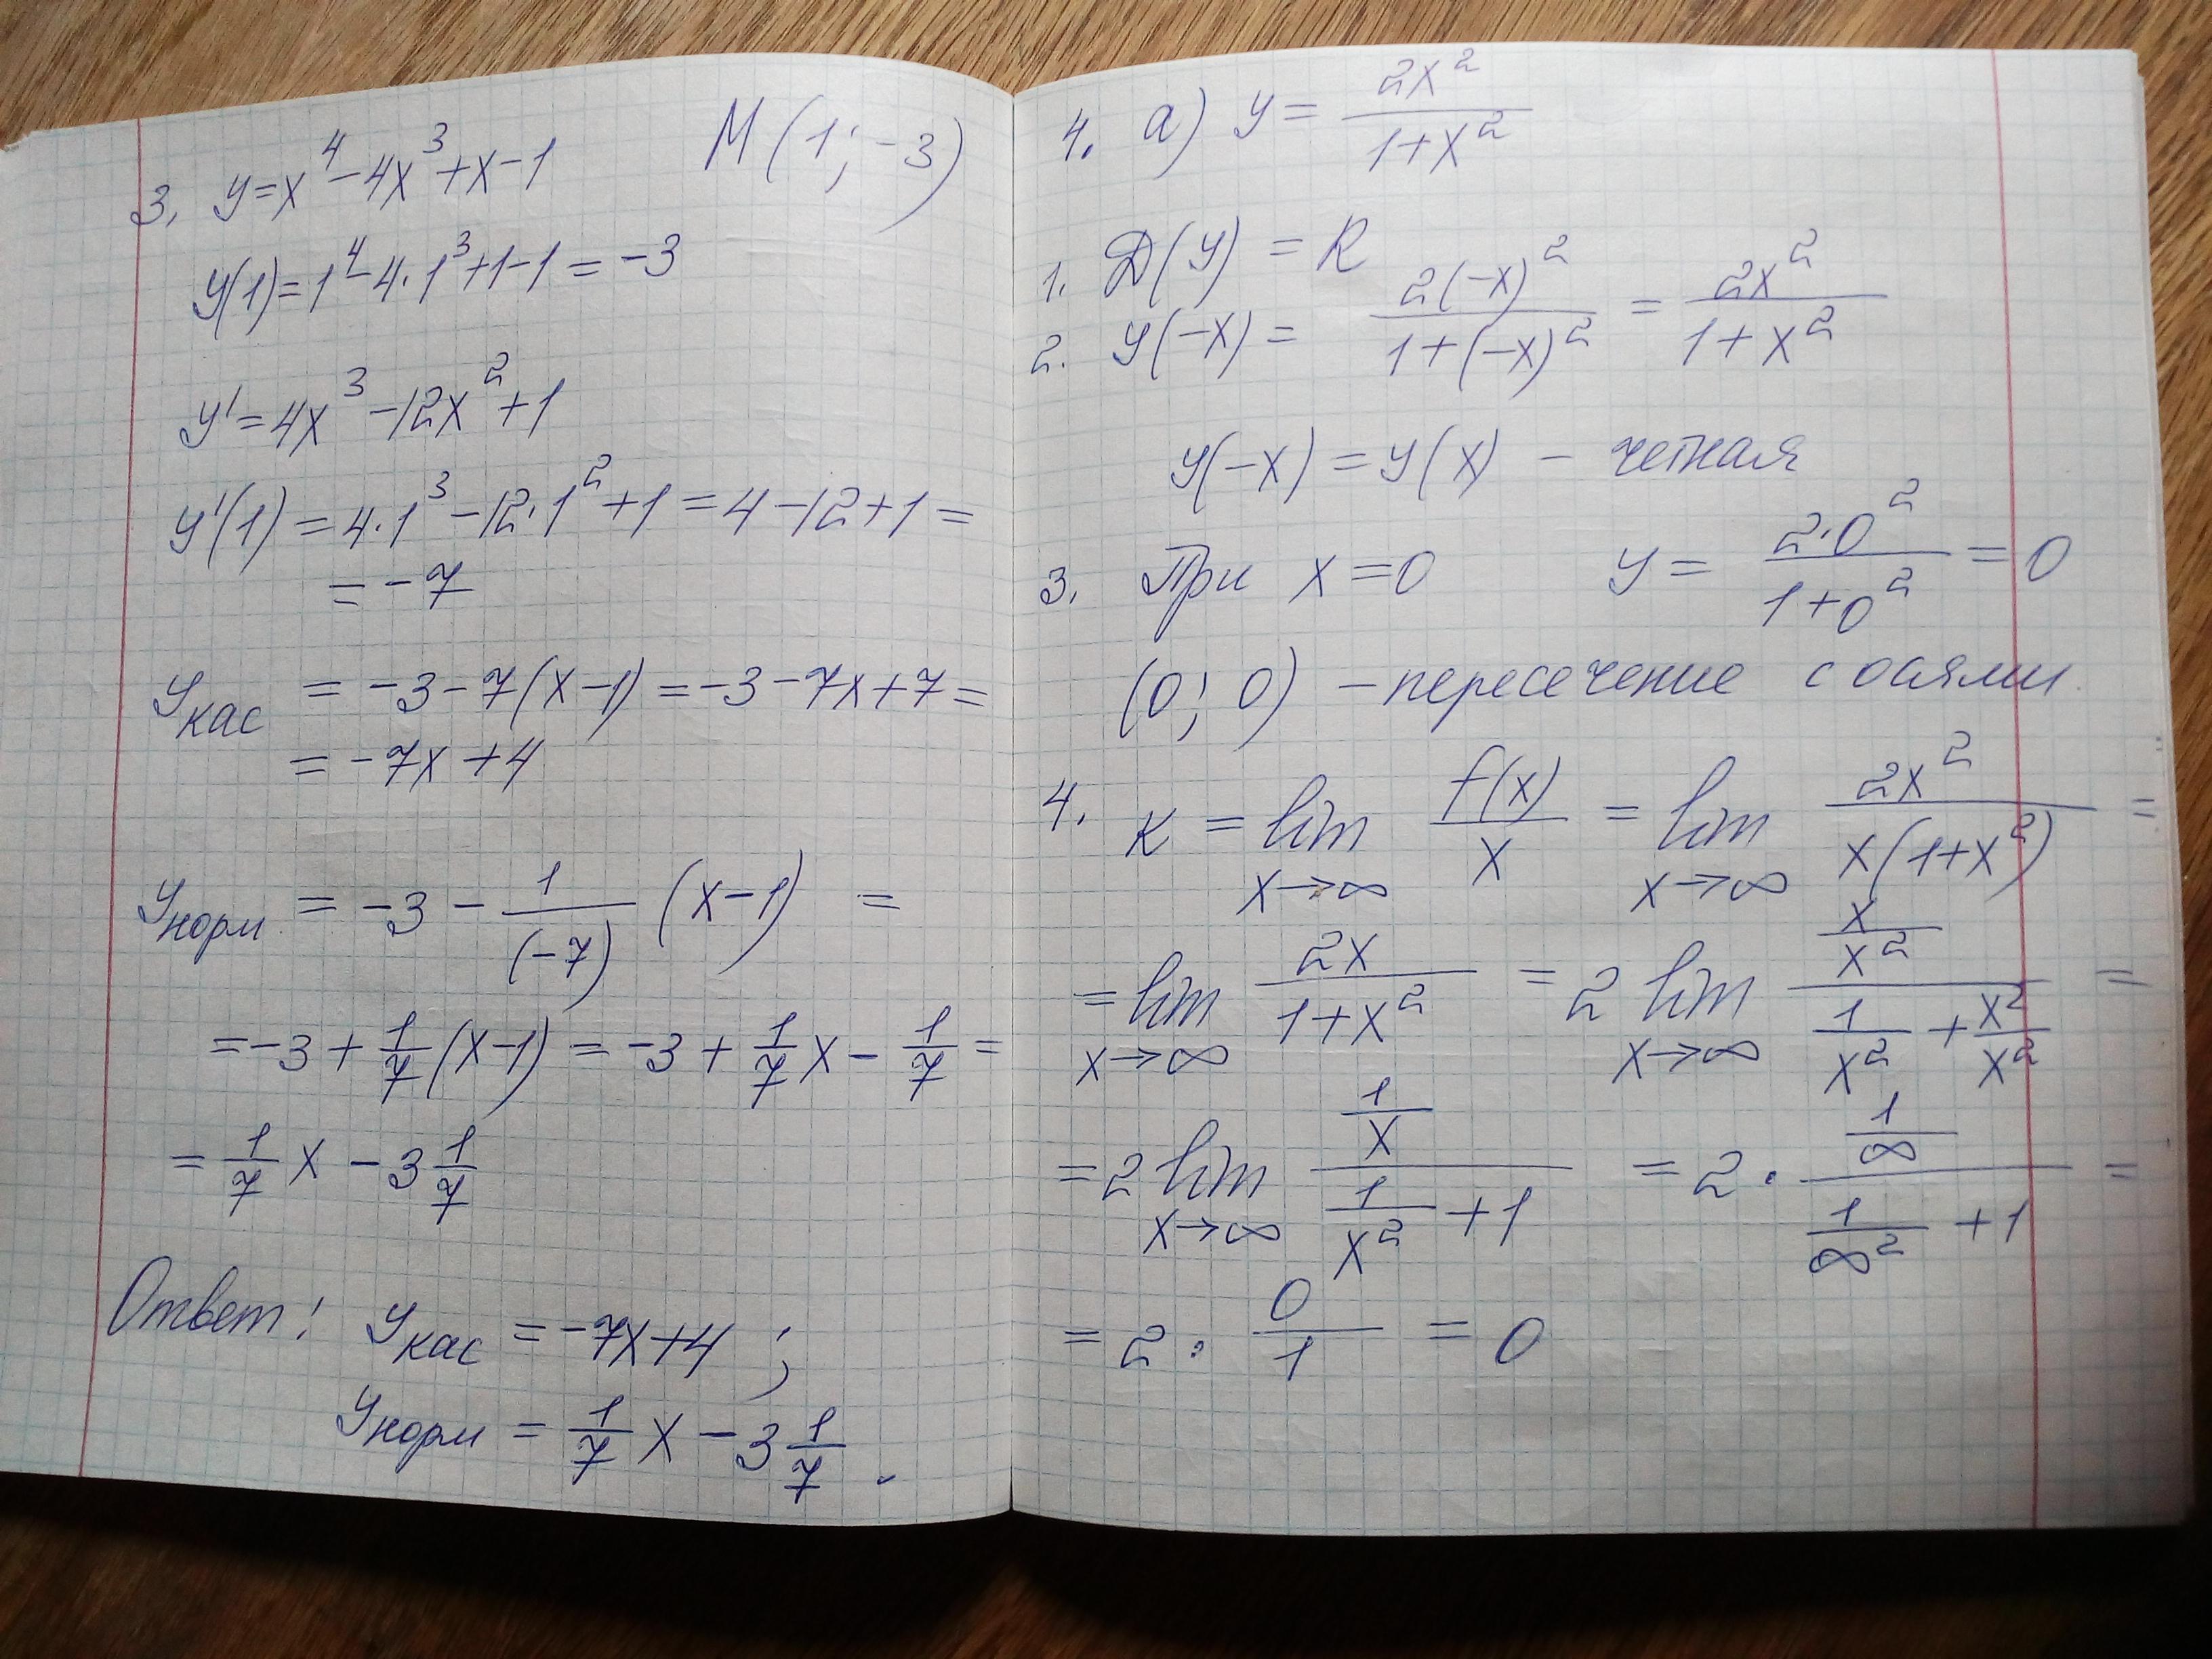 3. y=x⁴-4x³+x-1 M(1;-3)
y(1)=1⁴-4·1³+1-1=-3
y'=4x³-12x²+1
y'(1)=4·1³-12·1²+1=4-12+1=
=-7
y_кас = -3-7(x-1)=-3-7x+7=
= -7x+4
y_норм = -3 - 1/(-7) (x-1) =
=-3+1/7(x-1)=-3+1/7x-1/7=
=1/7x-3 1/7
Ответ: y_кас = -7x+4;
y_норм = 1/7x-3 1/7.
4. а) y= 2x²/(1+x²)
1. Д(y)=R
2. y(-x)= 2(-x)²/(1+(-x)²) = 2x²/(1+x²)
y(-x)=y(x) - четная
3. При x=0 y= 2·0²/(1+0²) =0
(0; 0) - пересечение с осями.
4. к = lim x→∞ f(x)/x = lim x→∞ 2x²/(x(1+x²)) =
= lim x→∞ 2x/(1+x²) = 2 lim x→∞ (x/x²)/(1/x²+x²/x²) =
=2 lim x→∞ (1/x)/(1/x²+1) =2·(1/∞)/(1/∞²+1)=
=2·0/1=0